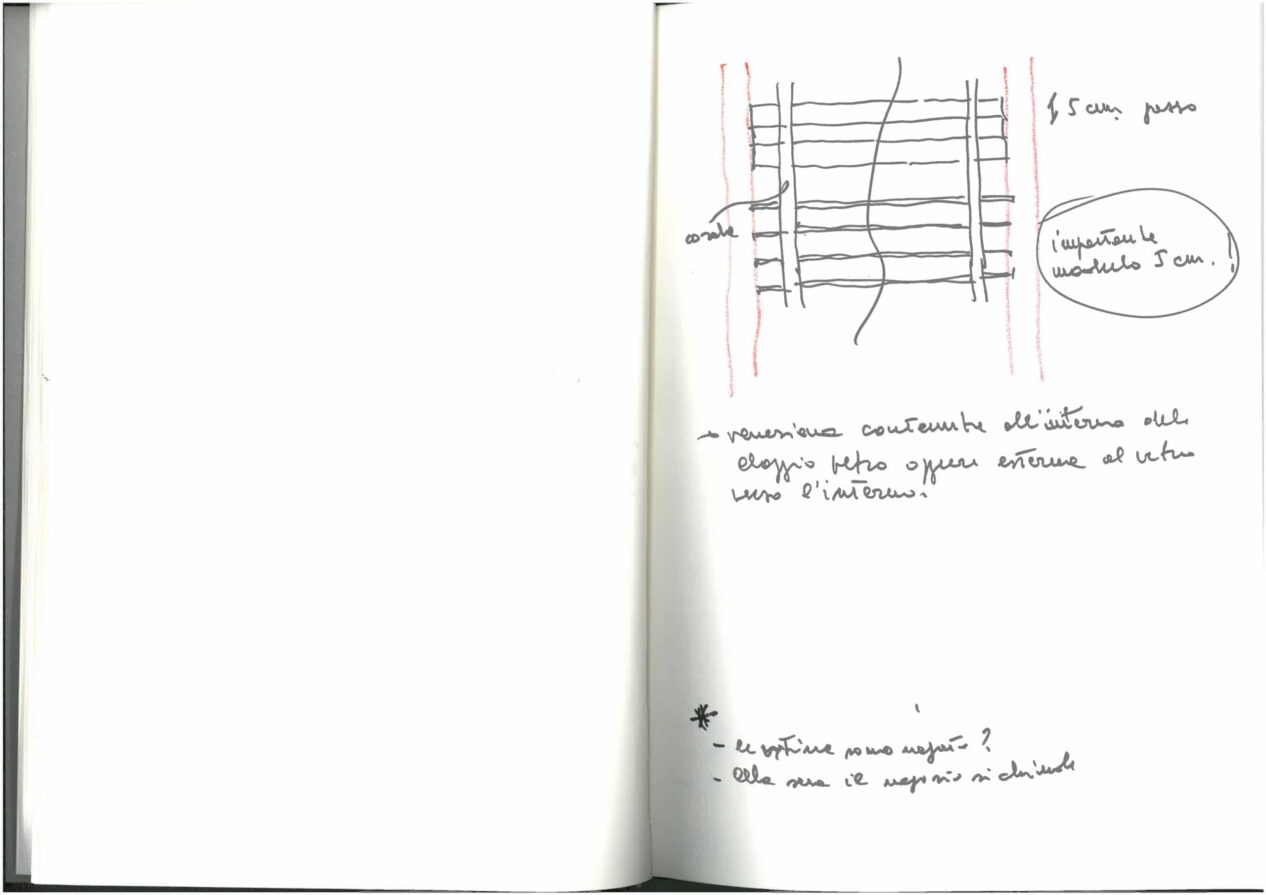 5 cm. passo
corda
importante
modulo 5 cm. !
→ veneziana contenuta all'interno del
doppio vetro oppure esterna al vetro
verso l'interno.
*
- le vetrine sono negozio ?
- Alla sera il negozio si chiude